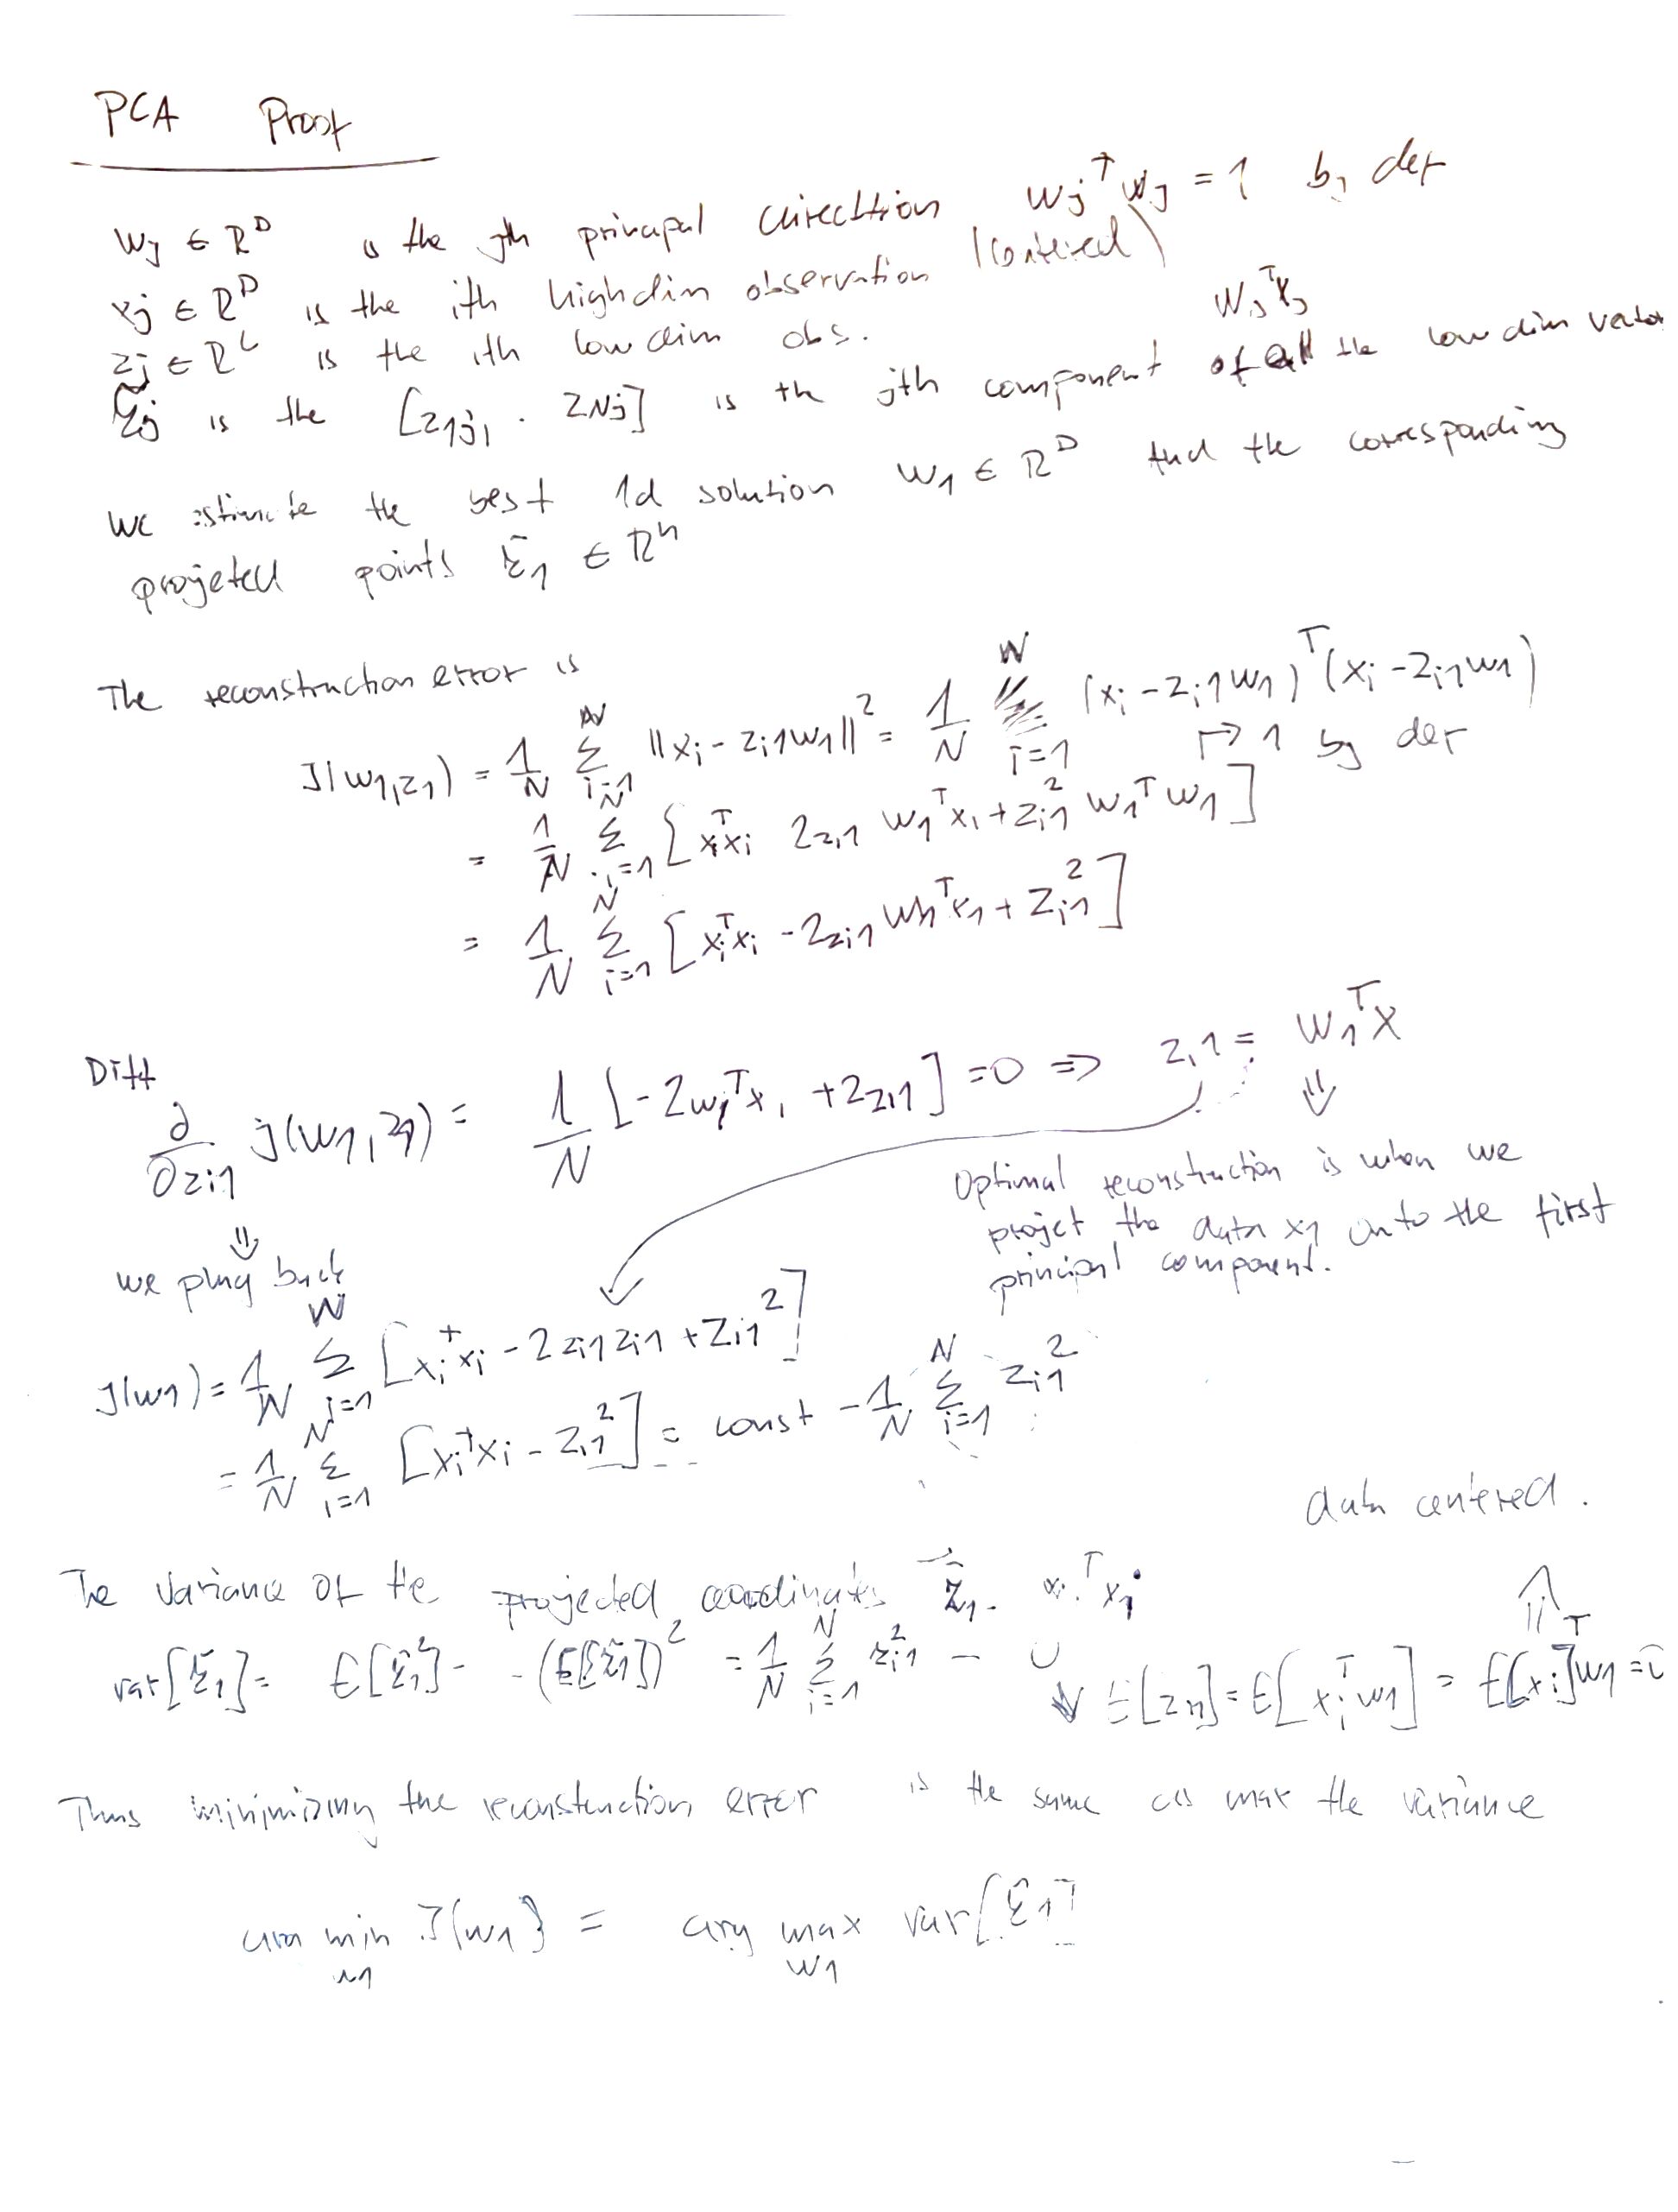 PCA Proof
wj ∈ R^D is the jth principal directtion wj^T wj = 1 by def
xj ∈ R^D is the ith highdim observation (contered)
zj ∈ R^L is the ith low dim obs. wj^T xj
z̃j is the [z1j, . zNj] is th jth component of all the low dim vector
We estimate the best 1d solution w1 ∈ R^D and the corresponding
projeted points z̃1 ∈ R^n
The reconstruction error is
J(w1,z1) = 1/N Σ_{i=1}^N ||xi - zi1w1||^2 = 1/N Σ_{i=1}^N (xi - zi1w1)^T (xi - zi1w1)
↦ 1 by def
= 1/N Σ_{i=1}^N [xi^T xi 2zi1 w1^T xi + zi1^2 w1^T w1]
= 1/N Σ_{i=1}^N [xi^T xi - 2zi1 w1^T x1 + zi1^2]
Diff
∂/∂zi1 J(w1,z1) = 1/N [-2w1^T xi + 2zi1] = 0 ⇒ zi1 = w1^T x
⇓
Optimal reconstruction is when we
projet the data x1 onto the first
principal component.
⇓
we plug back
J(w1) = 1/N Σ_{i=1}^N [xi^T xi - 2zi1zi1 + zi1^2]
= 1/N Σ_{i=1}^N [xi^T xi - zi1^2] = const - 1/N Σ_{i=1}^N zi1^2
data centered.
The Variance of the projected coordinates z̃1. ^T xi
var[z̃1] = E[z̃1^2] - - (E[z̃1])^2 = 1/N Σ_{i=1}^N zi1^2 - 0
↓ E[zi1] = E[xi^T w1] = E[xi]^T w1 = 0
Thus minimizing the reconstruction error is the same as max the variance
arg min_{w1} J(w1) = arg max_{w1} var[z̃1]